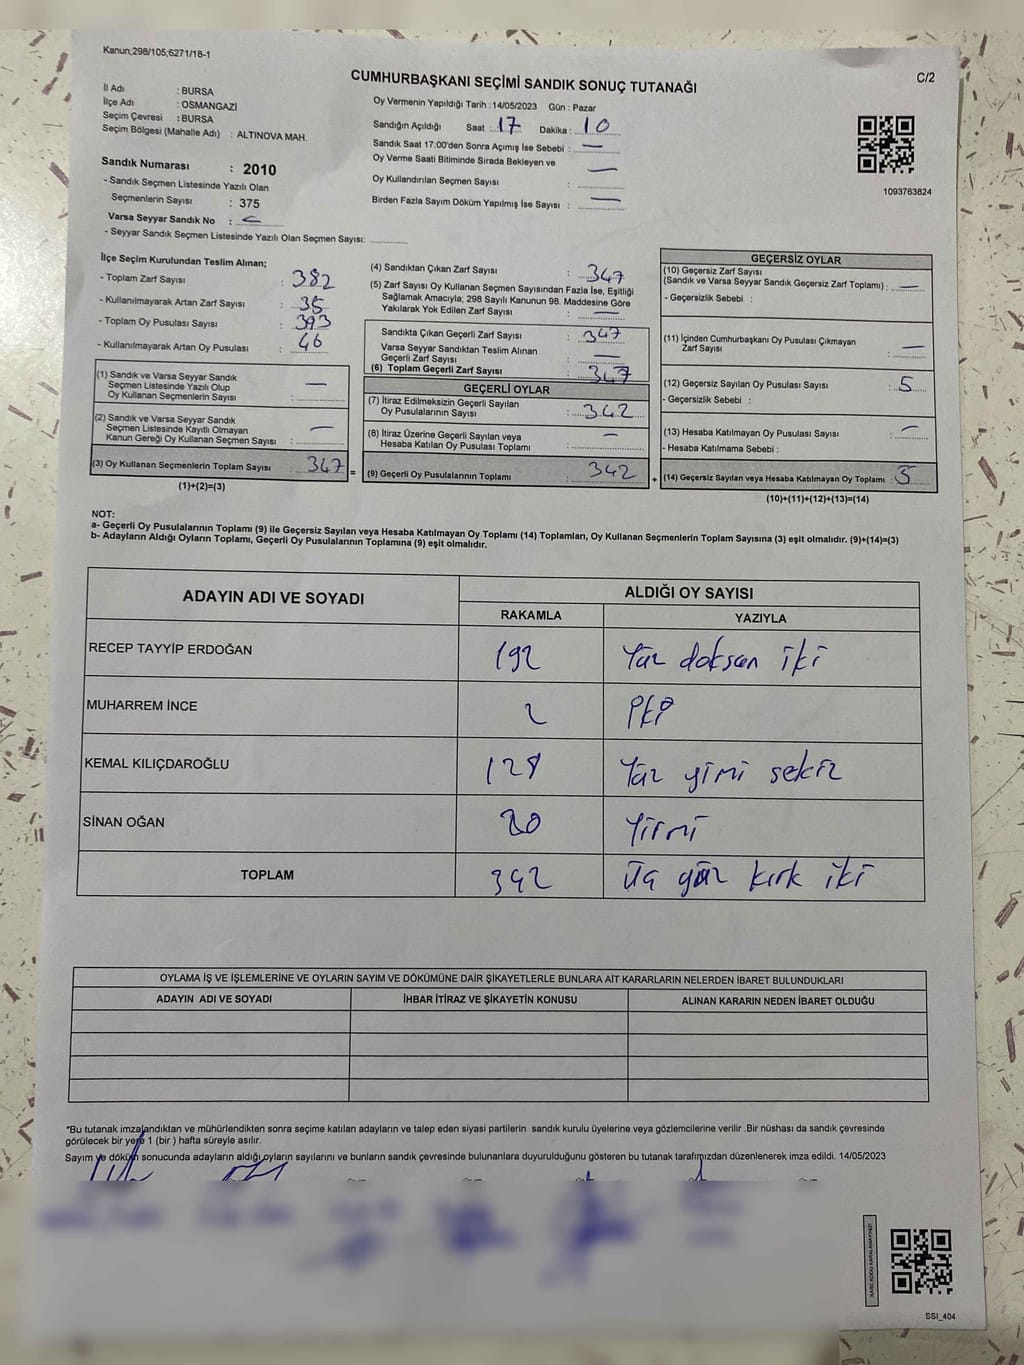 Kanun;298/105;6271/18-1
C/2
CUMHURBAŞKANI SEÇİMİ SANDIK SONUÇ TUTANAĞI
İl Adı : BURSA
İlçe Adı : OSMANGAZİ
Seçim Çevresi : BURSA
Seçim Bölgesi (Mahalle Adı) : ALTINOVA MAH.
Sandık Numarası : 2010
- Sandık Seçmen Listesinde Yazılı Olan
Seçmenlerin Sayısı : 375
Varsa Seyyar Sandık No : —
- Seyyar Sandık Seçmen Listesinde Yazılı Olan Seçmen Sayısı: ............
Oy Vermenin Yapıldığı Tarih : 14/05/2023 Gün : Pazar
Sandığın Açıldığı Saat : 17 Dakika : 10
Sandık Saat 17:00'den Sonra Açımış İse Sebebi : —
Oy Verme Saati Bitiminde Sırada Bekleyen ve —
Oy Kullandırılan Seçmen Sayısı :
Birden Fazla Sayım Döküm Yapılmış İse Sayısı : —
1093763824
İlçe Seçim Kurulundan Teslim Alınan;
- Toplam Zarf Sayısı : 382
- Kullanılmayarak Artan Zarf Sayısı : 35
- Toplam Oy Pusulası Sayısı : 393
- Kullanılmayarak Artan Oy Pusulası : 46
(1) Sandık ve Varsa Seyyar Sandık
Seçmen Listesinde Yazılı Olup —
Oy Kullanan Seçmenlerin Sayısı :
(2) Sandık ve Varsa Seyyar Sandık
Seçmen Listesinde Kayıtlı Olmayan —
Kanun Gereği Oy Kullanan Seçmen Sayısı :
(3) Oy Kullanan Seçmenlerin Toplam Sayısı : 347 =
(1)+(2)=(3)
(4) Sandıktan Çıkan Zarf Sayısı : 347
(5) Zarf Sayısı Oy Kullanan Seçmen Sayısından Fazla İse, Eşitliği
Sağlamak Amacıyla; 298 Sayılı Kanunun 98. Maddesine Göre
Yakılarak Yok Edilen Zarf Sayısı : —
Sandıkta Çıkan Geçerli Zarf Sayısı : 347
Varsa Seyyar Sandıktan Teslim Alınan
Geçerli Zarf Sayısı : —
(6) Toplam Geçerli Zarf Sayısı : 347
GEÇERLİ OYLAR
(7) İtiraz Edilmeksizin Geçerli Sayılan
Oy Pusulalarının Sayısı : 342
(8) İtiraz Üzerine Geçerli Sayılan veya —
Hesaba Katılan Oy Pusulası Toplamı :
(9) Geçerli Oy Pusulalarının Toplamı : 342 +
GEÇERSİZ OYLAR
(10) Geçersiz Zarf Sayısı
(Sandık ve Varsa Seyyar Sandık Geçersiz Zarf Toplamı) : —
- Geçersizlik Sebebi :
(11) İçinden Cumhurbaşkanı Oy Pusulası Çıkmayan
Zarf Sayısı : —
(12) Geçersiz Sayılan Oy Pusulası Sayısı : 5
- Geçersizlik Sebebi :
(13) Hesaba Katılmayan Oy Pusulası Sayısı : —
- Hesaba Katılmama Sebebi :
(14) Geçersiz Sayılan veya Hesaba Katılmayan Oy Toplamı : 5
(10)+(11)+(12)+(13)=(14)
NOT:
a- Geçerli Oy Pusulalarının Toplamı (9) ile Geçersiz Sayılan veya Hesaba Katılmayan Oy Toplamı (14) Toplamları, Oy Kullanan Seçmenlerin Toplam Sayısına (3) eşit olmalıdır. (9)+(14)=(3)
b- Adayların Aldığı Oyların Toplamı, Geçerli Oy Pusulalarının Toplamına (9) eşit olmalıdır.
ADAYIN ADI VE SOYADI ALDIĞI OY SAYISI
RAKAMLA YAZIYLA
RECEP TAYYİP ERDOĞAN 192 Yüz doksan iki
MUHARREM İNCE 2 İki
KEMAL KILIÇDAROĞLU 128 Yüz yimi sekiz
SİNAN OĞAN 20 Yirmi
TOPLAM 342 Üç yüz kırk iki
OYLAMA İŞ VE İŞLEMLERİNE VE OYLARIN SAYIM VE DÖKÜMÜNE DAİR ŞİKAYETLERLE BUNLARA AİT KARARLARIN NELERDEN İBARET BULUNDUKLARI
ADAYIN ADI VE SOYADI İHBAR İTİRAZ VE ŞİKAYETİN KONUSU ALINAN KARARIN NEDEN İBARET OLDUĞU
*Bu tutanak imzalandıktan ve mühürlendikten sonra seçime katılan adayların ve talep eden siyasi partilerin sandık kurulu üyelerine veya gözlemcilerine verilir .Bir nüshası da sandık çevresinde
görülecek bir yere 1 (bir ) hafta süreyle asılır.
Sayım ve döküm sonucunda adayların aldığı oyların sayılarını ve bunların sandık çevresinde bulunanlara duyurulduğunu gösteren bu tutanak tarafımızdan düzenlenerek imza edildi. 14/05/2023
SSI_404